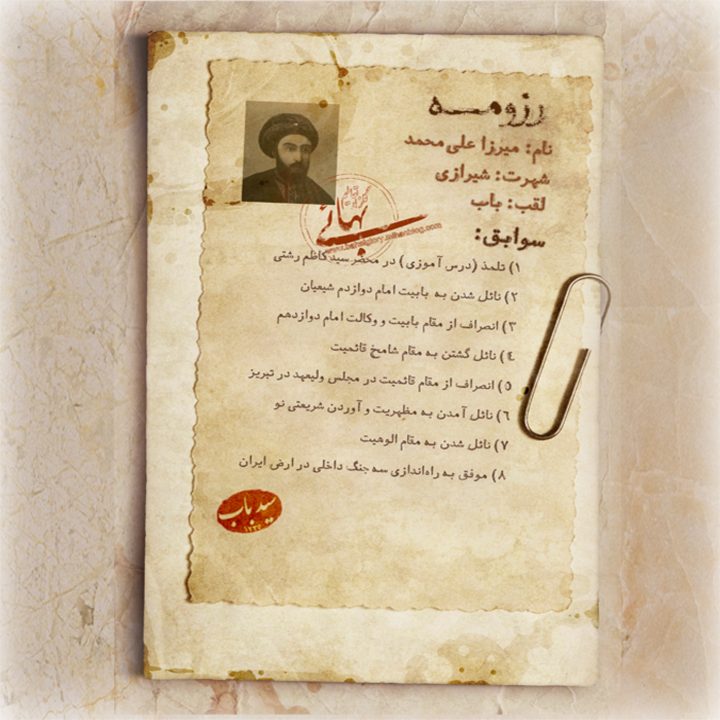 رزومه
نام: میرزا علی محمد
شهرت: شیرازی
لقب: باب
سوابق:
بهائی
۱) تلمذ (درس آموزی) در محضر سید کاظم رشتی
۲) نائل شدن به بابیت امام دوازدم شیعیان
۳) انصراف از مقام بابیت و وکالت امام دوازدهم
۴) نائل گشتن به مقام شامخ قائمیت
۵) انصراف از مقام قائمیت در مجلس ولیعهد در تبریز
۶) نائل آمدن به مظهریت و آوردن شریعتی نو
۷) نائل شدن به مقام الوهیت
۸) موفق به راه‌اندازی سه جنگ داخلی در ارض ایران
سید باب